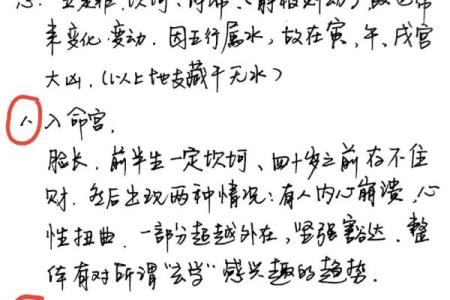 来变化、变动。因五行属水，故在寅、午、戌宫
大凶.（以上地支藏干无水）
1、入命宫，
脸长、前半生一定坎坷、四十岁之前存不住
财.然后出现两种情况：有人内心崩溃，心
性扭曲.一部分超越外在，坚强豁达.整
体有对所谓“玄学”感兴趣的趋势.